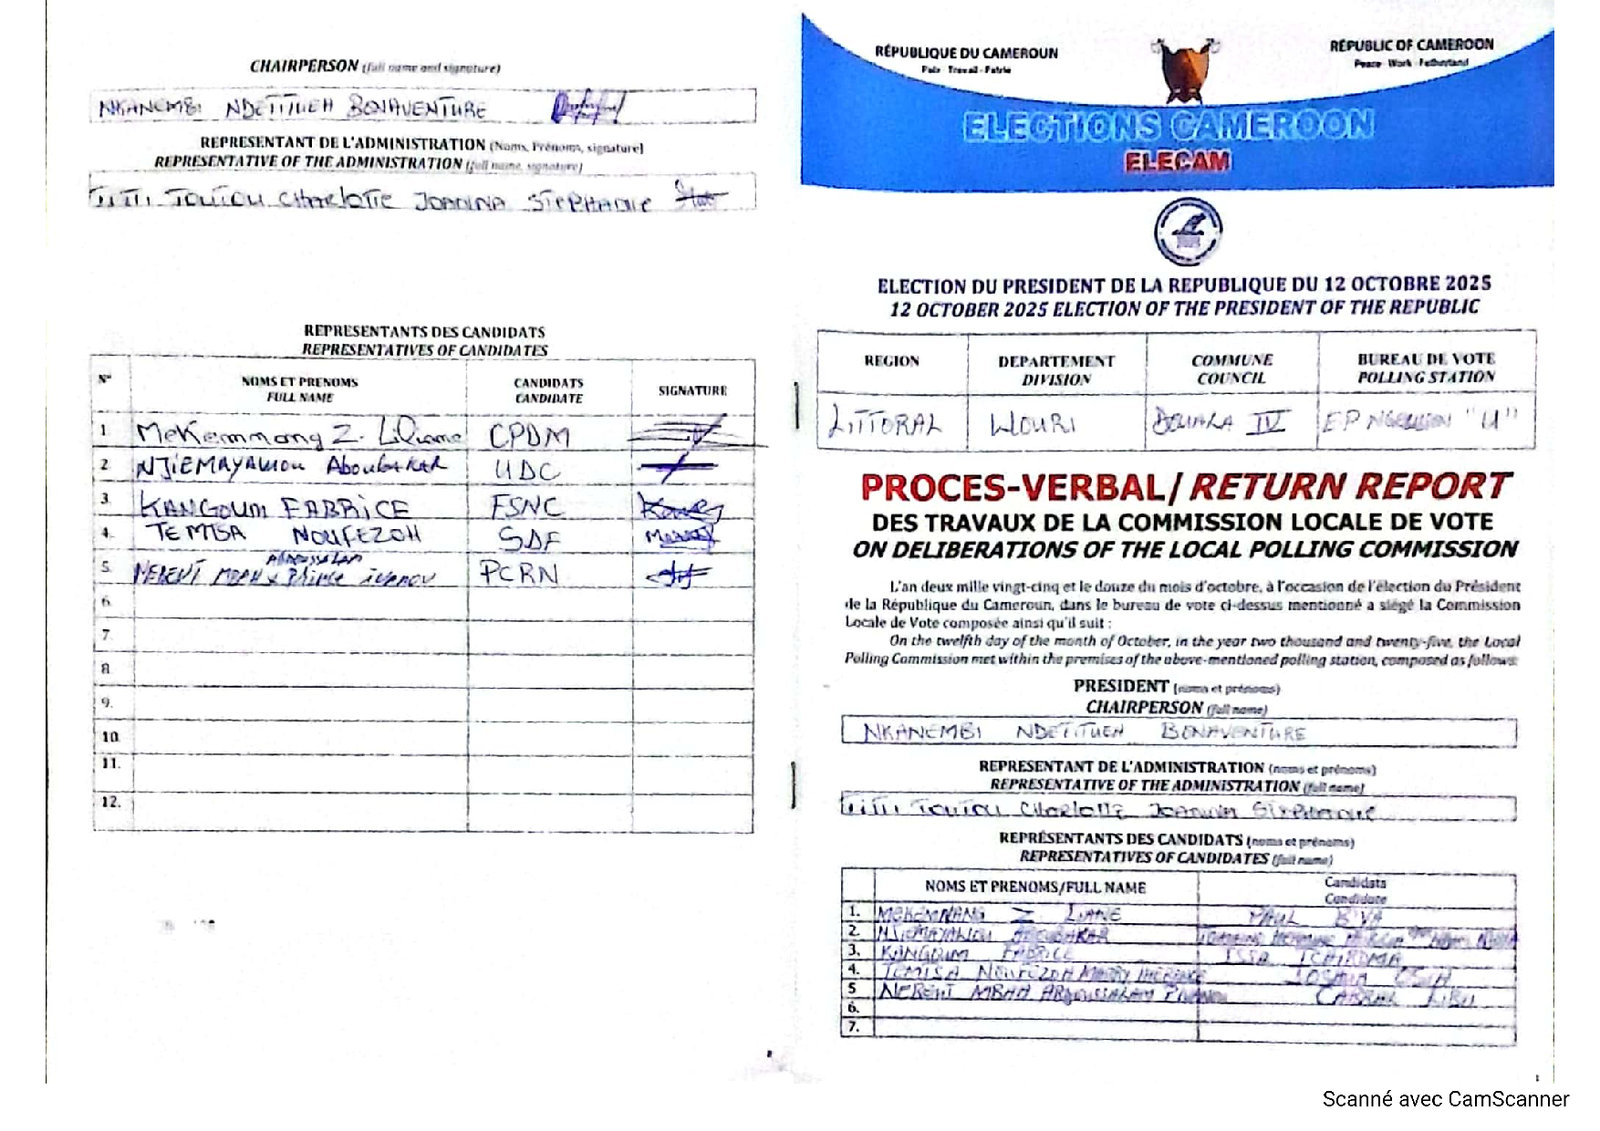 CHAIRPERSON (full name and signature)
NKANEMBI NDETITUEH BONAVENTURE
REPRESENTANT DE L'ADMINISTRATION (Noms, Prénoms, signature)
REPRESENTATIVE OF THE ADMINISTRATION (full name, signature)
TITTI TOUTOU CHARLOTTE JOANNA STEPHANIE
REPRESENTANTS DES CANDIDATS
REPRESENTATIVES OF CANDIDATES
N° NOMS ET PRENOMS CANDIDATS SIGNATURE
FULL NAME CANDIDATE
1 Mekemmang Z. Liliane CPDM
2 NJIEMAYAWOU Aboubakar UDC
3. KANGOUM FABRICE FSNC
4. TEMBA NOUFEZOH SDF
5. NEBENT MBAH Prince ivanov PCRN
ABDOUSSALAM
6.
7.
8
9.
10
11.
12.
RÉPUBLIQUE DU CAMEROUN
Paix - Travail - Patrie
REPUBLIC OF CAMEROON
Peace - Work - Fatherland
ELECTIONS CAMEROON
ELECAM
ELECTION DU PRESIDENT DE LA REPUBLIQUE DU 12 OCTOBRE 2025
12 OCTOBER 2025 ELECTION OF THE PRESIDENT OF THE REPUBLIC
REGION DEPARTEMENT COMMUNE BUREAU DE VOTE
DIVISION COUNCIL POLLING STATION
LITTORAL WOURI DOUALA IV EP "U"
PROCES-VERBAL/ RETURN REPORT
DES TRAVAUX DE LA COMMISSION LOCALE DE VOTE
ON DELIBERATIONS OF THE LOCAL POLLING COMMISSION
L'an deux mille vingt-cinq et le douze du mois d'octobre, à l'occasion de l'élection du Président
de la République du Cameroun, dans le bureau de vote ci-dessus mentionné a siégé la Commission
Locale de Vote composée ainsi qu'il suit :
On the twelfth day of the month of October, in the year two thousand and twenty-five, the Local
Polling Commission met within the premises of the above-mentioned polling station, composed as follows:
PRESIDENT (noms et prénoms)
CHAIRPERSON (full name)
NKANEMBI NDETITUEH BONAVENTURE
REPRESENTANT DE L'ADMINISTRATION (noms et prénoms)
REPRESENTATIVE OF THE ADMINISTRATION (full name)
TITTI TOUTOU CHARLOTTE JOANNA STEPHANIE
REPRÉSENTANTS DES CANDIDATS (noms et prénoms)
REPRESENTATIVES OF CANDIDATES (full name)
NOMS ET PRENOMS/FULL NAME Candidats
Candidate
1. MEKEMNANG Z LIANE PAUL BIYA
2. NJIEMAYAWOU ABOUBAKAR
3. KANGOUM FABRICE ISSA TCHIROMA
4. TEMBSA NOUFEZOH JOSHUA OSIH
5 NEBENT MBAH ABDOUSSALAM CABRAL LIBII
6.
7.
1
Scanné avec CamScanner